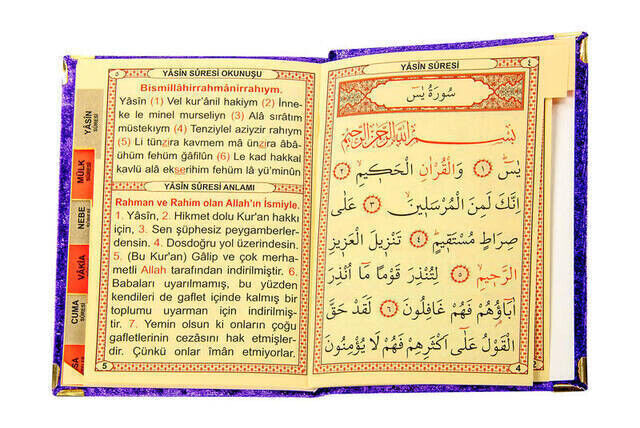 ٥
YÂSİN SÛRESİ OKUNUŞU
Bismillâhirrahmânirrahıym.
Yâsîn (1) Vel kur'ânil hakiym (2) İnne-
ke le minel murseliyn (3) Alâ sırâtım
müstekıym (4) Tenziylel aziyzir rahıym
(5) Li tünzira kavmem mâ ünzira âbâ-
ühüm fehüm ğâfilûn (6) Le kad hakkal
kavlü alâ ekserihim fehüm lâ yü'minûn
YÂSİN SÛRESİ ANLAMI
Rahman ve Rahim olan Allah'ın İsmiyle.
1. Yâsîn, 2. Hikmet dolu Kur'an hakkı
için, 3. Sen şüphesiz peygamberler-
densin. 4. Dosdoğru yol üzerindesin.
5. (Bu Kur'an) Gâlip ve çok merha-
metli Allah tarafından indirilmiştir. 6.
Babaları uyarılmamış, bu yüzden
kendileri de gaflet içinde kalmış bir
toplumu uyarman için indirilmiş-
tir. 7. Yemin olsun ki onların çoğu
gafletlerinin cezasını hak etmişler-
dir. Çünkü onlar îmân etmiyorlar.
5
YÂSİN
SÛRESİ
MÜLK
SÛRESİ
NEBE
SÛRESİ
VÂKIA
SÛRESİ
CUMA
SÛRESİ
YÂSİN SÛRESİ
٤
سُورَةُ يٰسٓ
بِسْمِ اللّٰهِ الرَّحْمٰنِ الرَّحِيمِ
يٰسٓ ﴿١﴾ وَالْقُرْاٰنِ الْحَكِيمِ ﴿٢﴾
اِنَّكَ لَمِنَ الْمُرْسَلِينَ ﴿٣﴾ عَلٰى
صِرَاطٍ مُسْتَقِيمٍ ﴿٤﴾ تَنْزِيلَ الْعَزِيزِ
الرَّحِيمِ ﴿٥﴾ لِتُنْذِرَ قَوْمًا مَٓا اُنْذِرَ
اٰبَٓاؤُ۬هُمْ فَهُمْ غَافِلُونَ ﴿٦﴾ لَقَدْ حَقَّ
الْقَوْلُ عَلٰٓى اَكْثَرِهِمْ فَهُمْ لَا يُؤْمِنُونَ
4